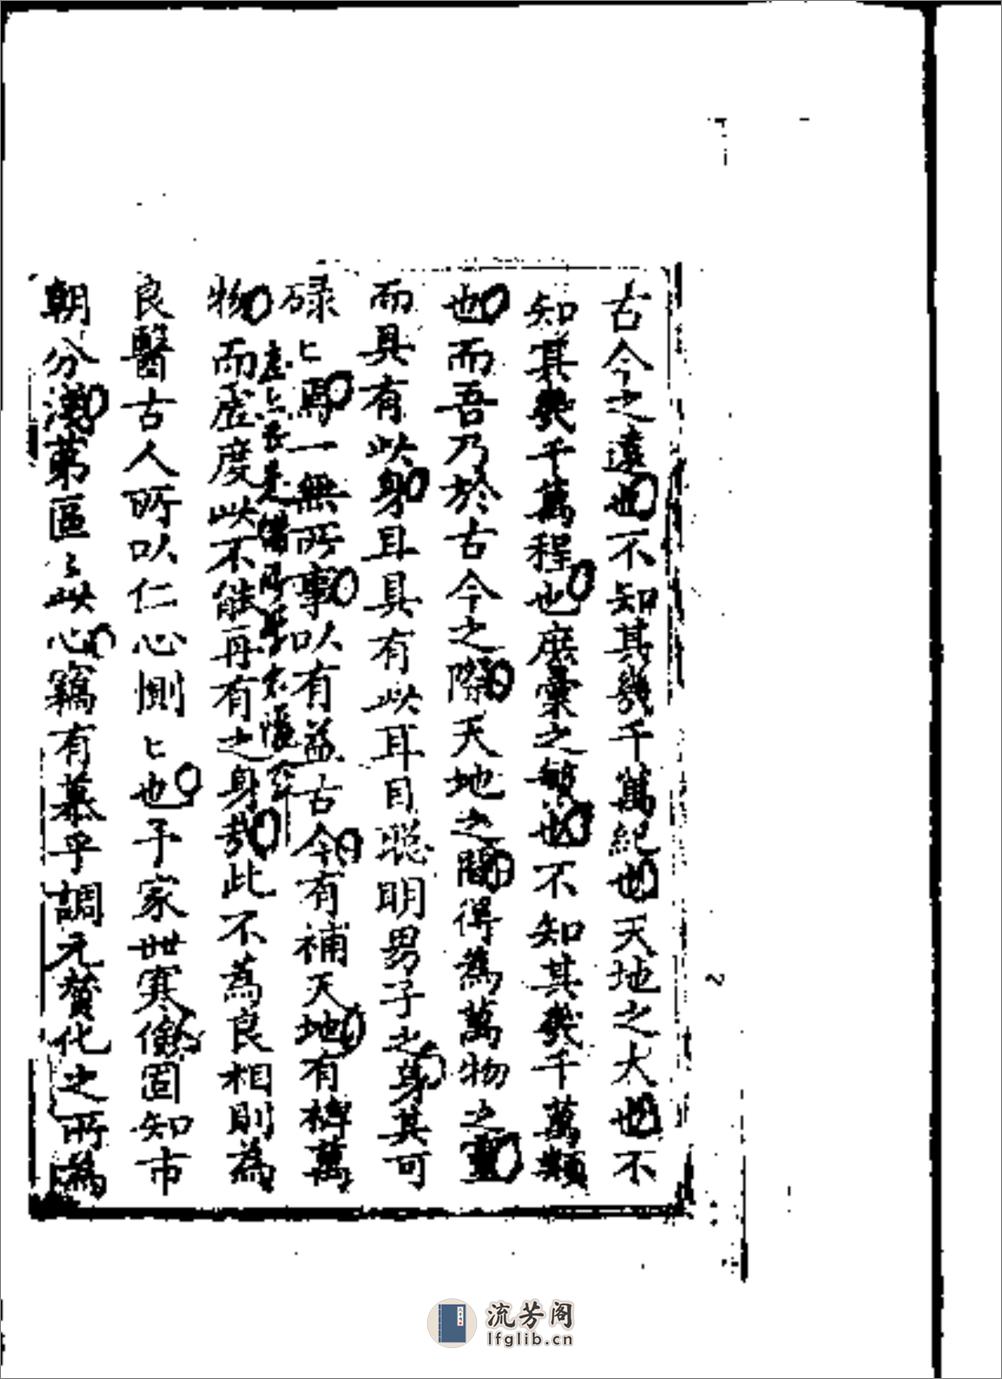 古今之遠也不知其幾千萬紀也天地之大也不
知其幾千萬程也庶彙之繁也不知其幾千萬類
也而吾乃於古今之際天地之間得為萬物之靈
而具有此身耳具有此耳目聡明男子之身其可
碌〻焉一無所事以有益古今有補天地有裨萬
物而虛度此不能再有之身哉此不為良相則為
良醫古人所以仁心惻〻也予家世寒儉固知市
朝分淺苐區〻此心竊有慕乎調元贊化之所為
2
流芳阁
lfglib.cn